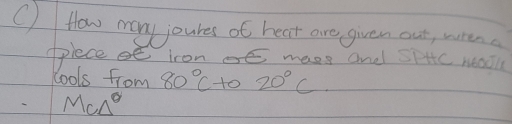 C) How many joules of heat are given out, when a
piece of iron of mass and SPHC
Cools from 80°C to 20°C.
- McΔθ